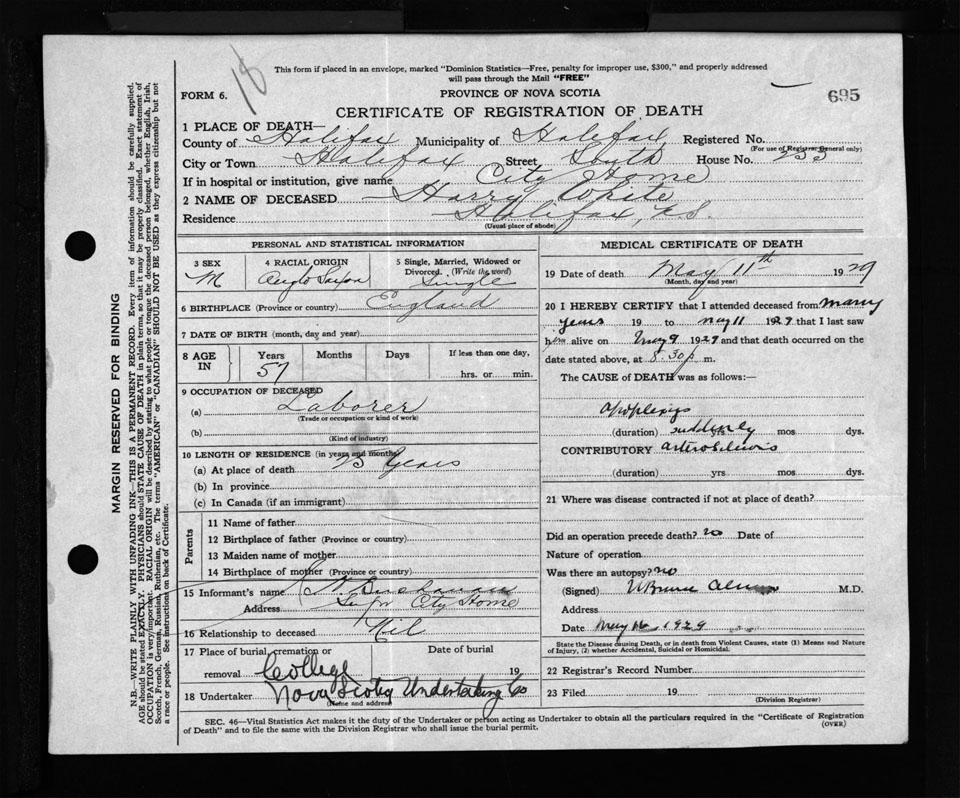 18
This form if placed in an envelope, marked "Dominion Statistics—Free, penalty for improper use, $300," and properly addressed
will pass through the Mail "FREE"
FORM 6.
PROVINCE OF NOVA SCOTIA
695
CERTIFICATE OF REGISTRATION OF DEATH
1 PLACE OF DEATH—
County of Halifax Municipality of Halifax Registered No.
(For use of Registrar General only)
City or Town Halifax Street South House No. 235
If in hospital or institution, give name City Home
2 NAME OF DECEASED Harry White
Residence Halifax, N.S.
(Usual place of abode)
PERSONAL AND STATISTICAL INFORMATION
3 SEX M
4 RACIAL ORIGIN Anglo Saxon
5 Single, Married, Widowed or
Divorced. (Write the word)
Single
6 BIRTHPLACE (Province or country) England
7 DATE OF BIRTH (month, day and year)
8 AGE IN
Years Months Days If less than one day,
57 hrs. or min.
9 OCCUPATION OF DECEASED
(a) Laborer
(Trade or occupation or kind of work)
(b)
(Kind of industry)
10 LENGTH OF RESIDENCE (in years and months)
(a) At place of death Years
(b) In province
(c) In Canada (if an immigrant)
Parents
11 Name of father
12 Birthplace of father (Province or country)
13 Maiden name of mother
14 Birthplace of mother (Province or country)
15 Informant's name Buchanan
Address Supt City Home
16 Relationship to deceased Nil
17 Place of burial, cremation or Date of burial
removal College 19
18 Undertaker Nova Scotia Undertaking Co
(Name and address)
MEDICAL CERTIFICATE OF DEATH
19 Date of death May 11th 1929
(Month, day and year)
20 I HEREBY CERTIFY that I attended deceased from many
years 19 to may 11 1929 that I last saw
him alive on May 9 1929 and that death occurred on the
date stated above, at 8.30 p. m.
The CAUSE of DEATH was as follows:—
apoplexy
(duration) suddenly yrs mos dys.
CONTRIBUTORY
(duration) yrs mos dys.
21 Where was disease contracted if not at place of death?
Did an operation precede death? no Date of
Nature of operation
Was there an autopsy? no
(Signed) M.D.
Address
Date May 1929
State the Disease causing Death, or in death from Violent Causes, state (1) Means and Nature
of Injury, (2) whether Accidental, Suicidal or Homicidal.
22 Registrar's Record Number
23 Filed 19
(Division Registrar)
SEC. 46—Vital Statistics Act makes it the duty of the Undertaker or person acting as Undertaker to obtain all the particulars required in the "Certificate of Registration
of Death" and to file the same with the Division Registrar who shall issue the burial permit.
(OVER)
MARGIN RESERVED FOR BINDING
N.B.—WRITE PLAINLY WITH UNFADING INK—THIS IS PERMANENT RECORD. Every item of information should be carefully supplied.
AGE should be stated EXACTLY. PHYSICIANS should STATE CAUSE OF DEATH in plain terms, so that it may be properly classified. Exact statement of
OCCUPATION is very important. RACIAL ORIGIN will be described by stating to what people or tongue the deceased person belonged, whether English, Irish,
Scotch, French, German, Russian, Ruthenian, etc. The terms "AMERICAN" or "CANADIAN" SHOULD NOT BE USED as they express citizenship but not
a race or people. See instructions on back of Certificate.